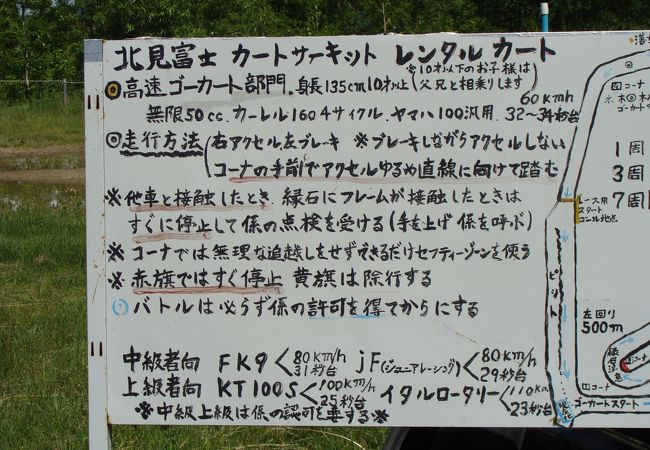 北見富士 カートサーキット レンタル カート
◎高速ゴーカート部門. 身長135cm10才以上(※10才以下のお子様は父兄と相乗りします)
60km/h
無限50cc. カーレル160 4サイクル. ヤマハ100汎用. 32〜34秒台
◎走行方法(右アクセル左ブレーキ ※ブレーキしながらアクセルしない
コーナの手前でアクセルゆるめ直線に向けて踏む
※他車と接触したとき. 縁石にフレームが接触したときは
すぐに停止して係の点検を受ける(手を上げ 係を呼ぶ)
※コーナでは無理な追越しをせずできるだけセフティーゾーンを使う
※赤旗ではすぐ停止 黄旗は除行する
○バトルは必らず係の許可を得てからにする
中級者向 FK9<80km/h 31秒台 jF(ジュニアレーシング)<80km/h 29秒台
上級者向 KT100S<100km/h 25秒台 イタルロータリー<110km 23秒台
※中級上級は係の認可を要する※
コーナ
ゴーカート
1周
3周
7周
レース用
スタート
ゴール地点
ピット
左回り
500m
コーナ
コーナ
ゴーカートスタート